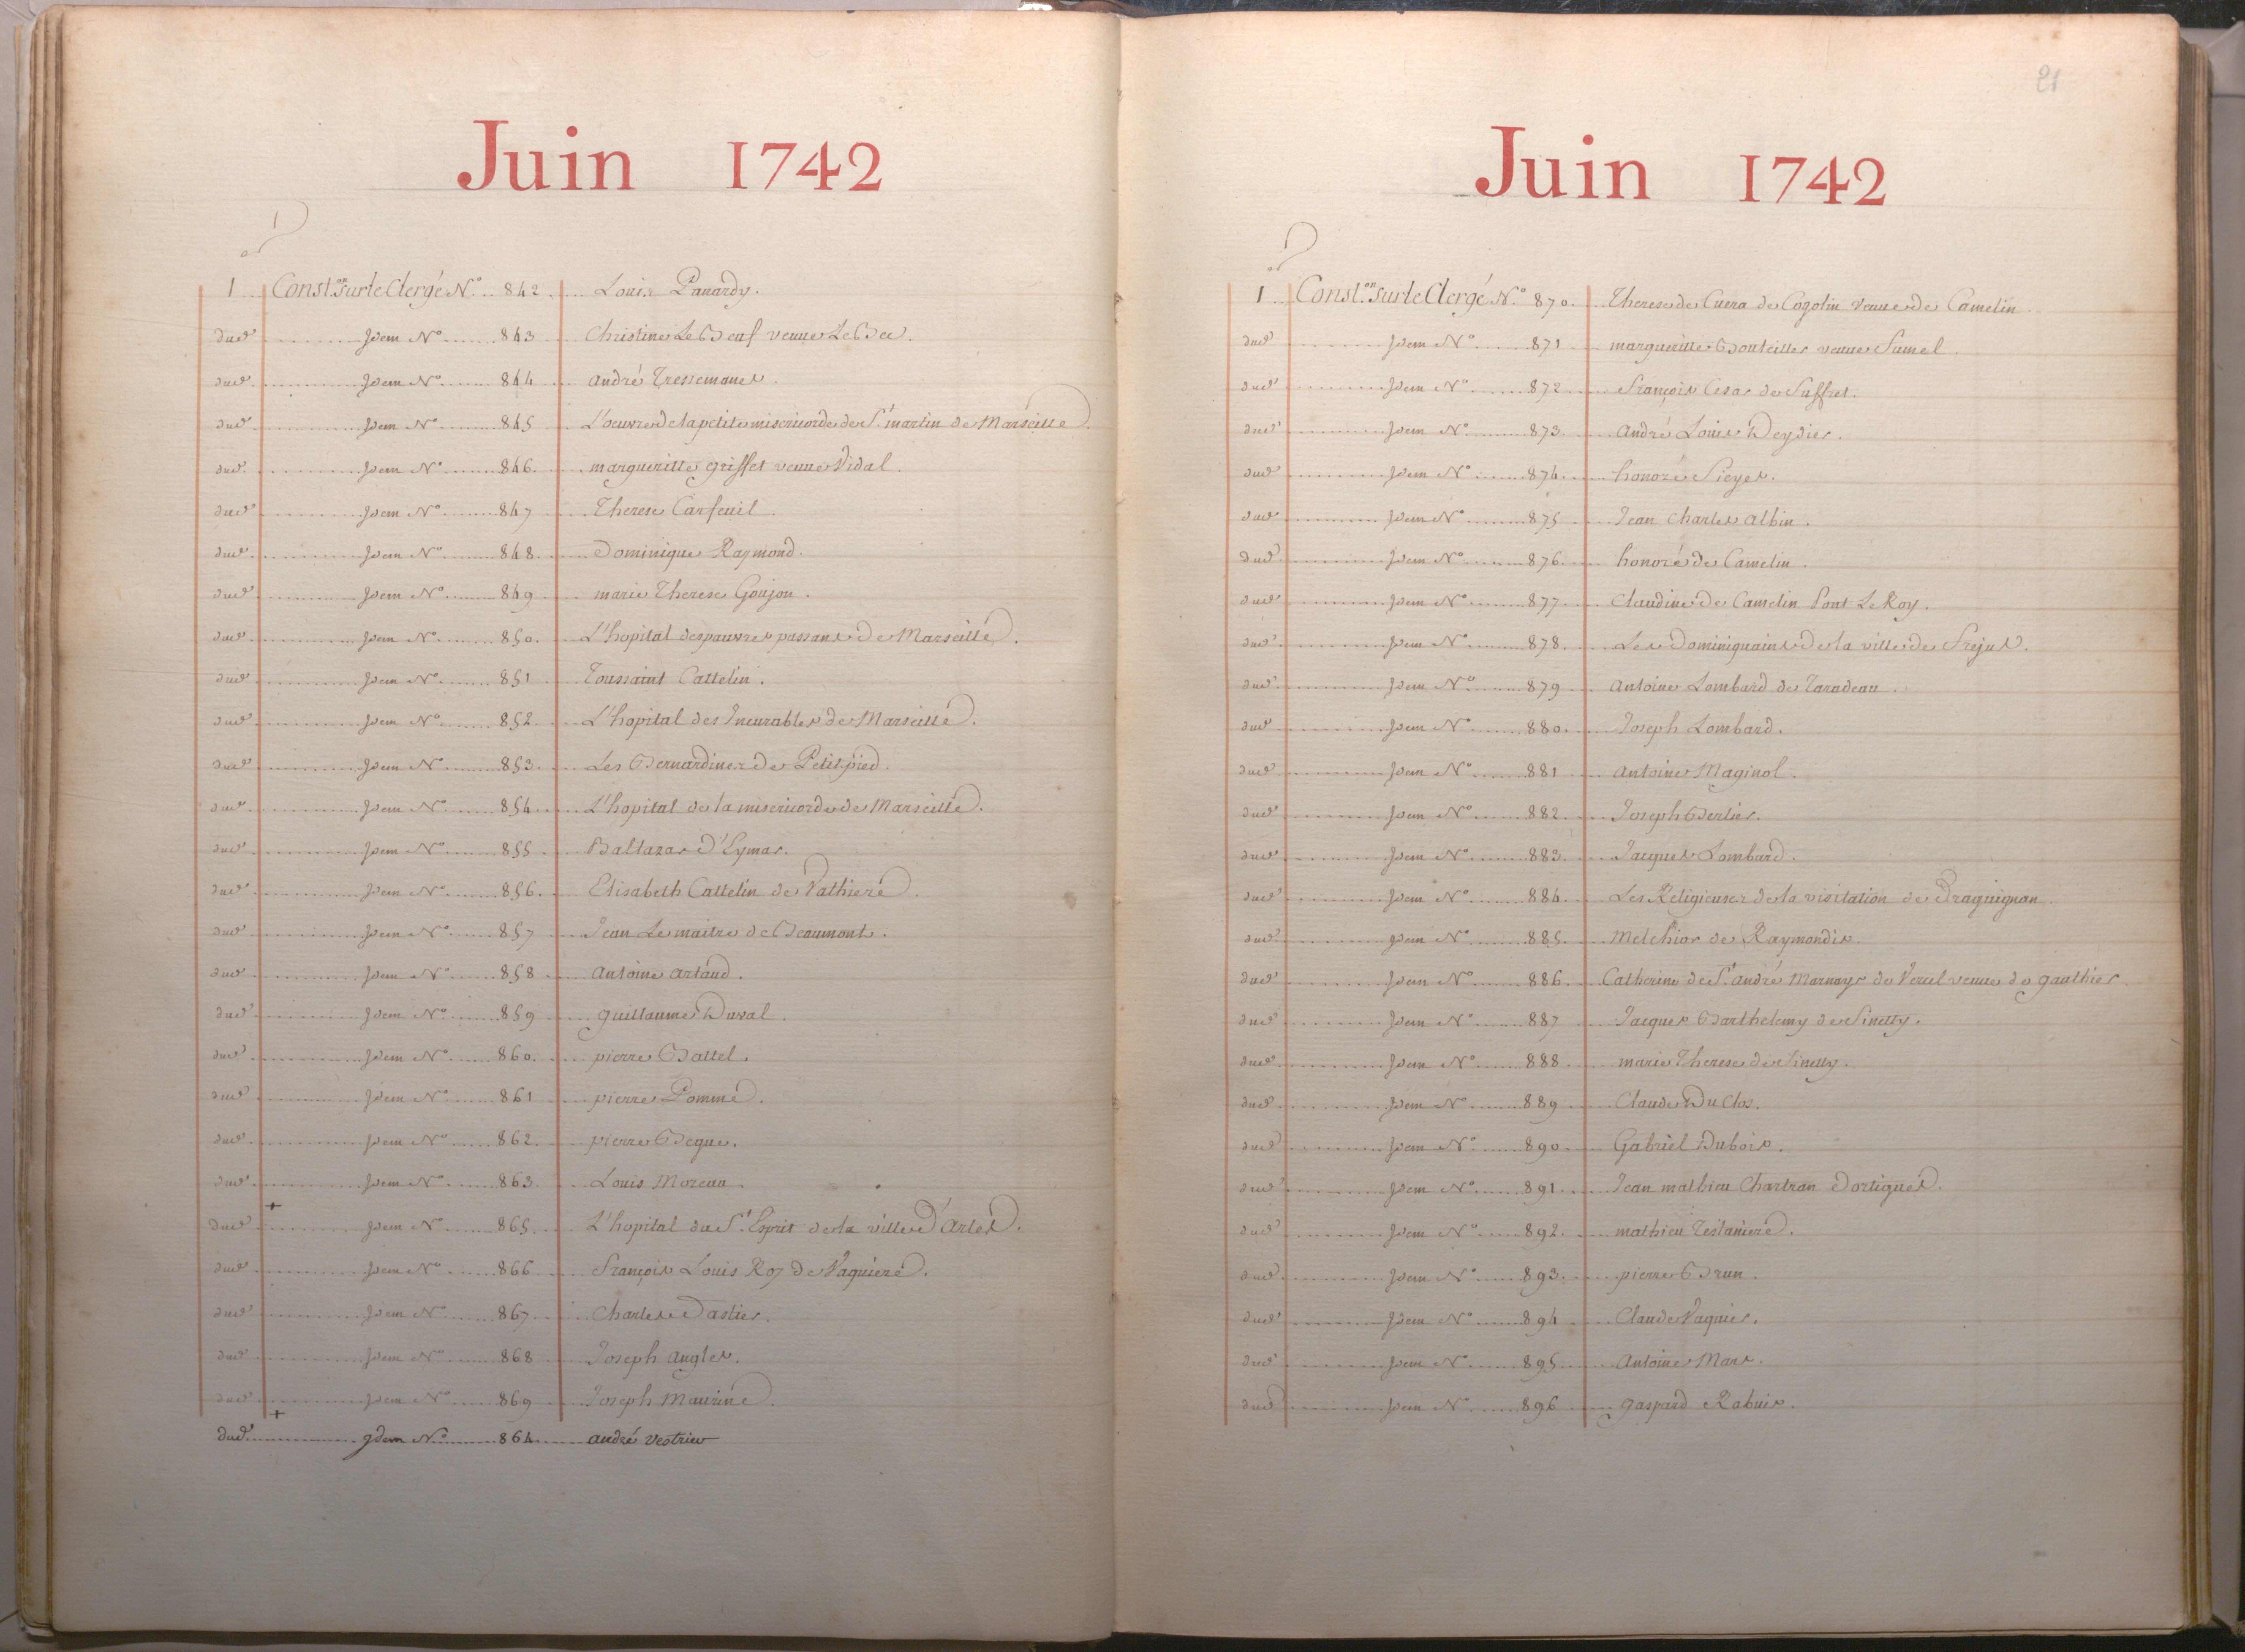 Juin 1742
1 Const.on sur le Clergé N.o 842 Louis Panardy.
dud.t Idem N.o 843 Christine Le Beuf veuve Le Bec.
dud.t Idem N.o 844 André Tressemanes.
dud.t Idem N.o 845 L'oeuvre de la petite misericorde de S.t martin de Marseille.
dud.t Idem N.o 846 margueritte griffet veuve Vidal.
dud.t Idem N.o 847 Therese Carfeuil.
dud.t Idem N.o 848 Dominique Raymond.
dud.t Idem N.o 849 marie Therese Goujon.
dud.t Idem N.o 850 L'hopital des pauvres passans de Marseille.
dud.t Idem N.o 851 Toussaint Cattelin.
dud.t Idem N.o 852 L'hopital des Incurables de Marseille.
dud.t Idem N.o 853 Les Bernardines de Petit pied.
dud.t Idem N.o 854 L'hopital de la misericorde de Marseille.
dud.t Idem N.o 855 Baltazar d'Eymar.
dud.t Idem N.o 856 Elisabeth Cattelin de Vathiere.
dud.t Idem N.o 857 Jean Le maitre de Beaumont.
dud.t Idem N.o 858 antoine artaud.
dud.t Idem N.o 859 guillaume Duval.
dud.t Idem N.o 860 pierre Battel.
dud.t Idem N.o 861 pierre Pomme.
dud.t Idem N.o 862 pierre Begue.
dud.t Idem N.o 863 Louis Moreau.
+
dud.t Idem N.o 865 L'hopital du S.t Esprit de la ville d'Arles.
dud.t Idem N.o 866 François Louis Roy de Vaquiere.
dud.t Idem N.o 867 Charles Dastier.
dud.t Idem N.o 868 Joseph angles.
dud.t Idem N.o 869 Joseph Maurine.
+
dud.t Idem N.o 864 andré vestrieu
21
Juin 1742
1 Const.on sur le Clergé N.o 870 Therese de Cuera de Cogolin veuve de Camelin.
dud.t Idem N.o 871 margueritte Bouteille veuve Sumel.
dud.t Idem N.o 872 François Cesar de Suffret.
dud.t Idem N.o 873 andré Louis Deydier.
dud.t Idem N.o 874 honoré Sieyes.
dud.t Idem N.o 875 Jean charles albin.
dud.t Idem N.o 876 honoré de Camelin.
dud.t Idem N.o 877 Claudine de Camelin Pont Le Roy.
dud.t Idem N.o 878 Les Dominiquains de la ville de Frejus.
dud.t Idem N.o 879 antoine Lombard de Taradeau.
dud.t Idem N.o 880 Joseph Lombard.
dud.t Idem N.o 881 antoine Maginol.
dud.t Idem N.o 882 Joseph Berlier.
dud.t Idem N.o 883 Jacques Lombard.
dud.t Idem N.o 884 Les Religieuses de la visitation de Draguignan.
dud.t Idem N.o 885 Melchior de Raymondis.
dud.t Idem N.o 886 Catherine de S.t andré Marnays de Vercel veuve de gaulthier.
dud.t Idem N.o 887 Jacques Barthelemy de Sinetty.
dud.t Idem N.o 888 marie Therese de Sinetty.
dud.t Idem N.o 889 Claude Du Clos.
dud.t Idem N.o 890 Gabriel Dubois.
dud.t Idem N.o 891 Jean mathieu Chartran Dortigues.
dud.t Idem N.o 892 mathieu Testaniere.
dud.t Idem N.o 893 pierre Brun.
dud.t Idem N.o 894 Claude Vaquier.
dud.t Idem N.o 895 antoine Mars.
dud.t Idem N.o 896 gaspard Rabuis.